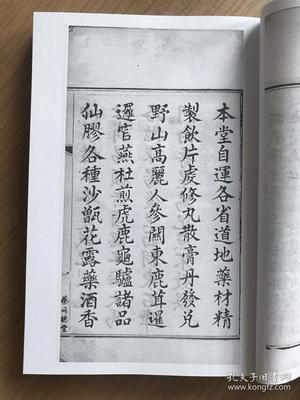 本堂自運各省道地藥材精
製飲片虔修丸散膏丹發兌
野山高麗人參關東鹿茸暹
邏官燕杜煎虎鹿龜驢諸品
仙膠各種沙甑花露藥酒香
一
蔡同德堂
孔夫子旧书网